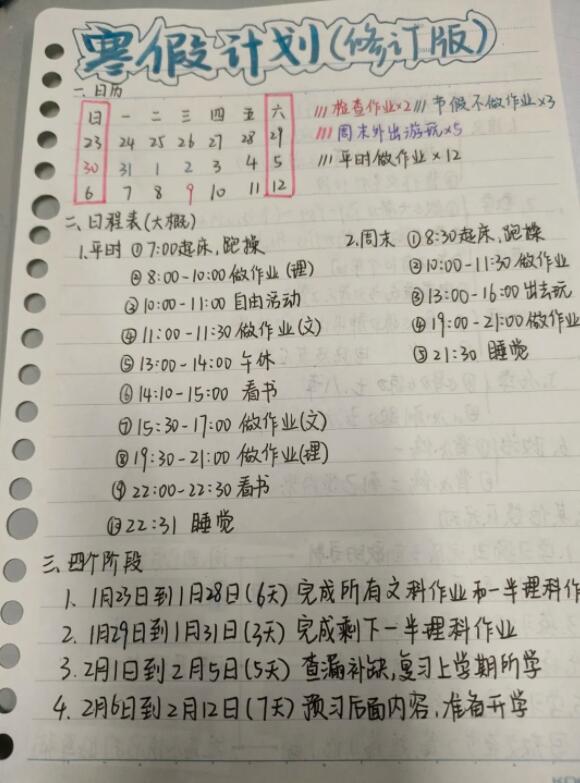 寒假计划(修订版)
一.日历
日 一 二 三 四 五 六
23 24 25 26 27 28 29
30 31 1 2 3 4 5
6 7 8 9 10 11 12
/// 检查作业×2 /// 节假不做作业×3
/// 周末外出游玩×5
/// 平时做作业×12
二.日程表(大概)
1.平时 ①7:00起床,跑操
②8:00-10:00做作业(理)
③10:00-11:00自由活动
④11:00-11:30做作业(文)
⑤13:00-14:00 午休
⑥14:10-15:00 看书
⑦15:30-17:00 做作业(文)
⑧19:30-21:00 做作业(理)
⑨22:00-22:30看书
⑩22:31 睡觉
2.周末 ①8:30起床,跑操
②10:00-11:30做作业
③13:00-16:00出去玩
④19:00-21:00做作业
⑤21:30 睡觉
三.四个阶段
1. 1月23日到1月28日(6天) 完成所有文科作业和一半理科作
2. 1月29日到1月31日(3天) 完成剩下一半理科作业
3. 2月1日到2月5日(5天) 查漏补缺,复习上学期所学
4. 2月6日到2月12日(7天) 预习后面内容,准备开学